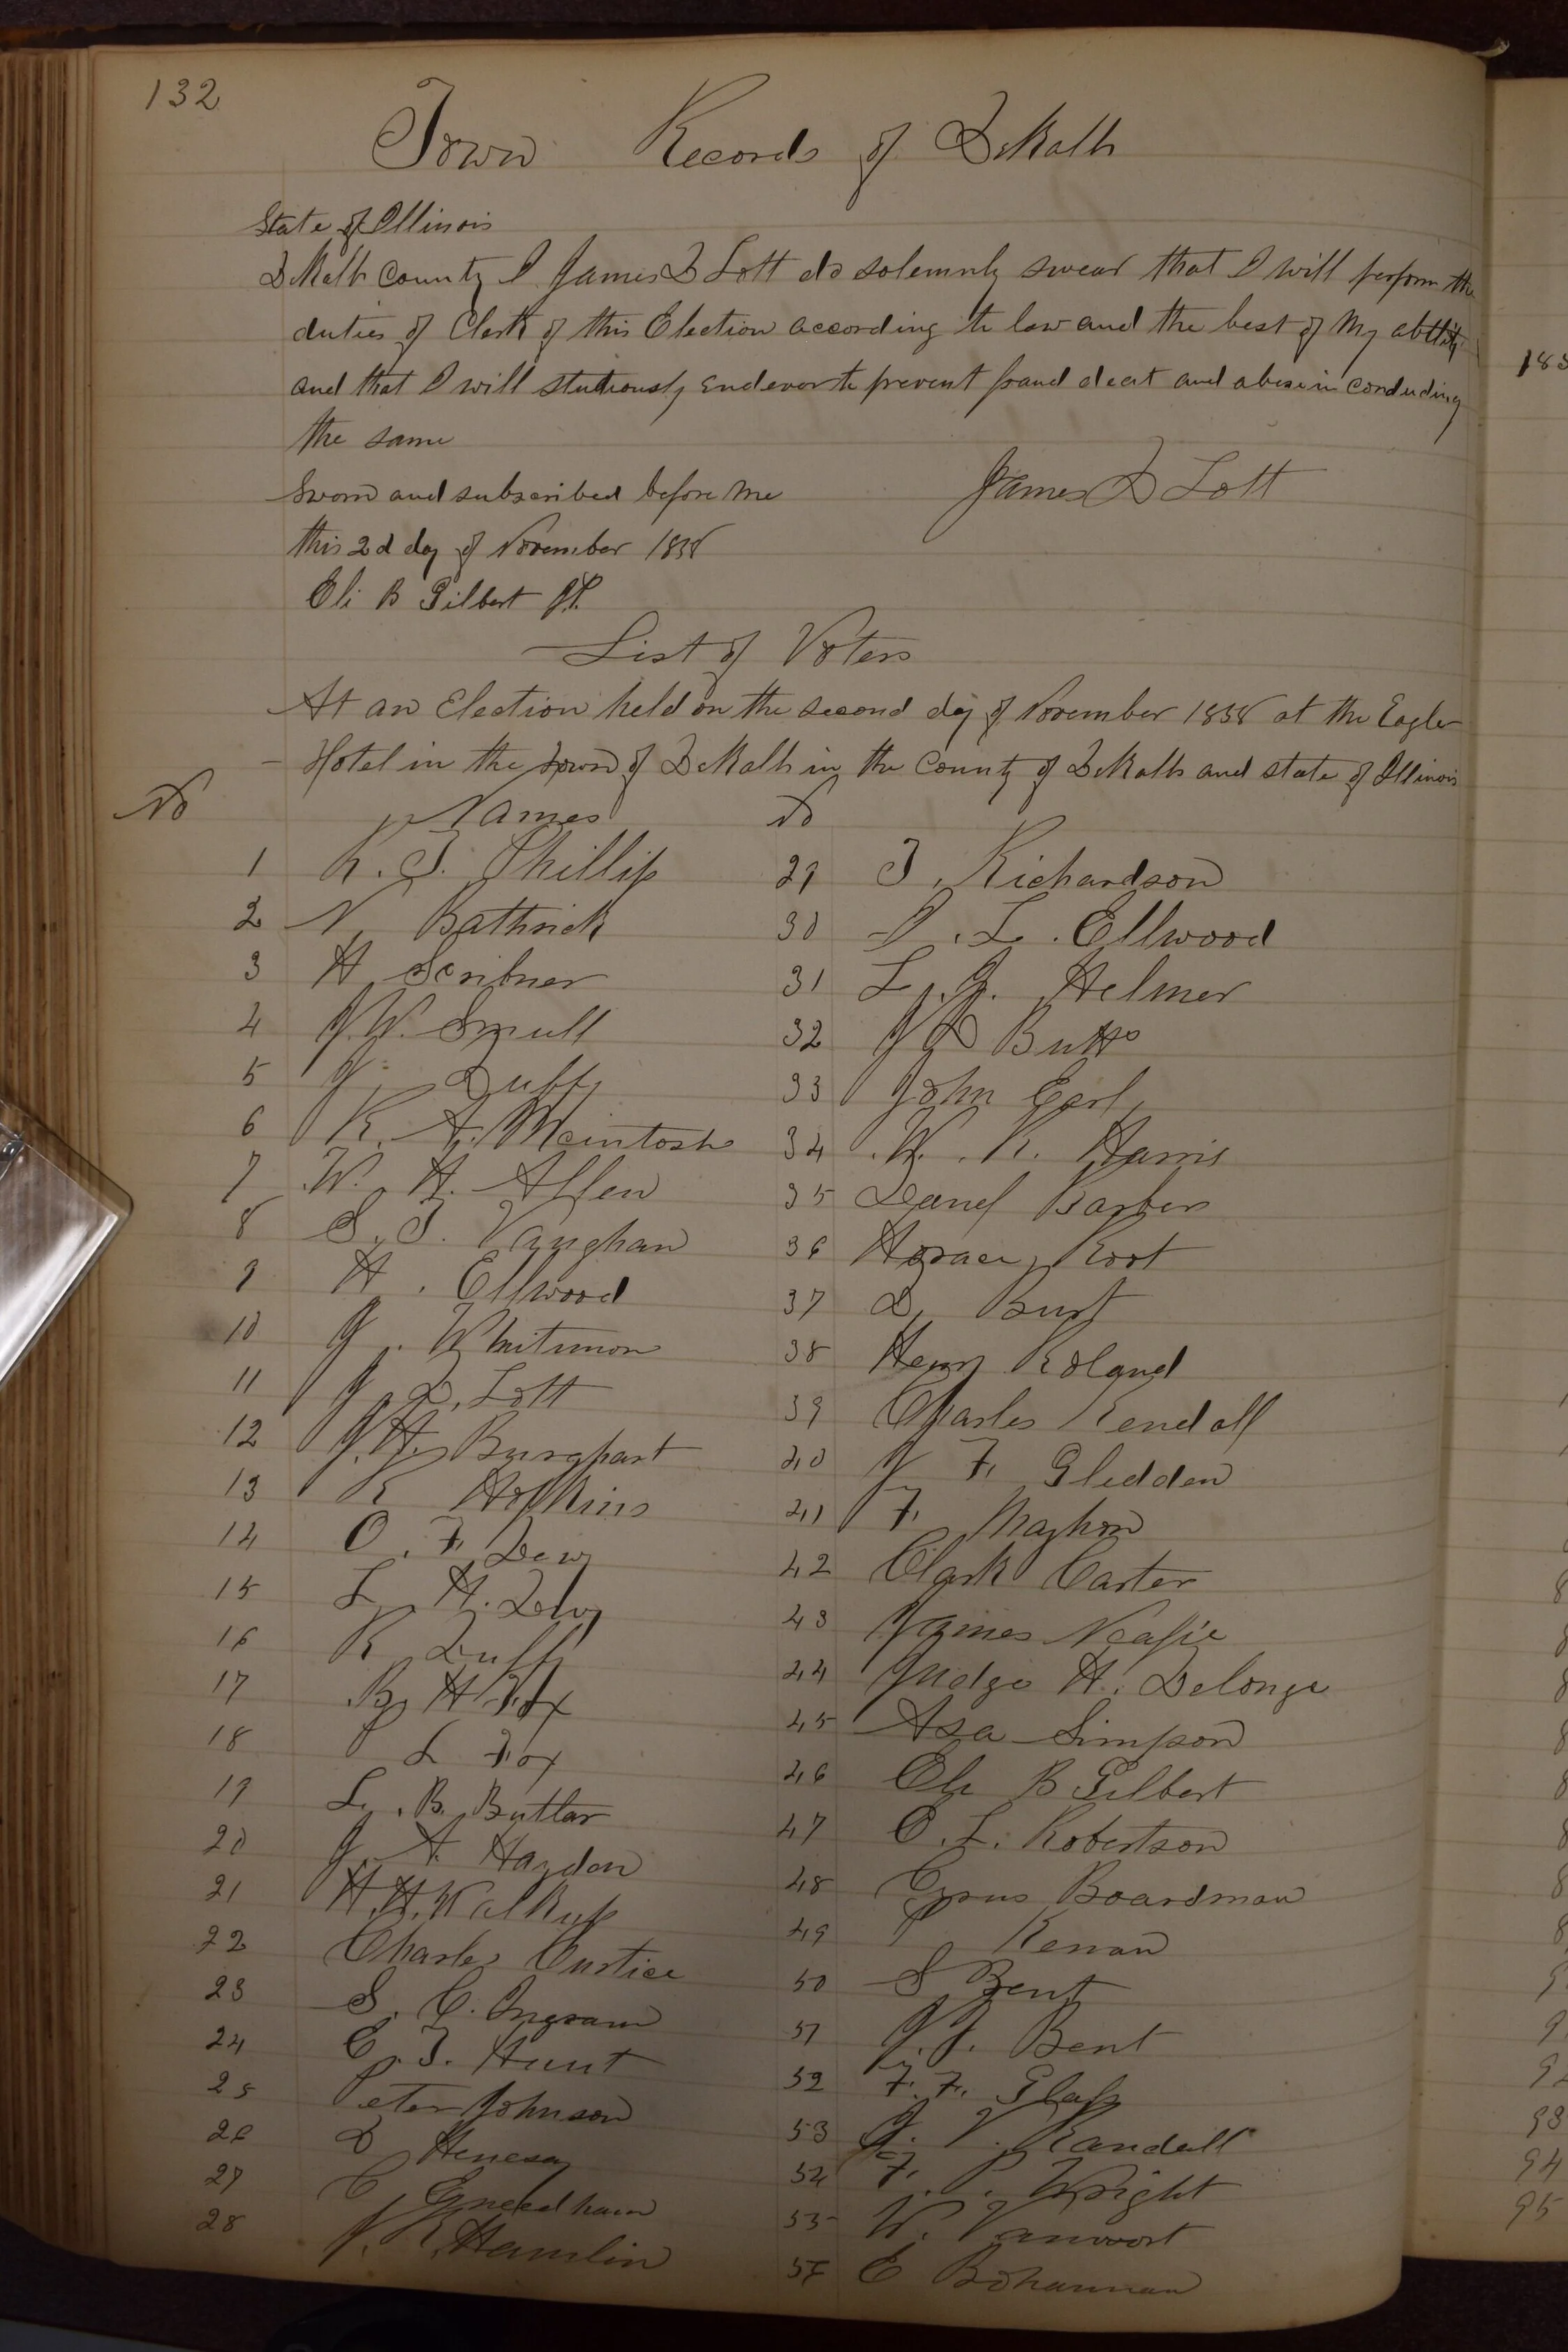 132
Town Records of DeKalb
State of Illinois
DeKalb County I James D Lott do solemnly swear that I will perform the
duties of Clerk of this Election according to law and the best of my ability
and that I will studiously endevor to prevent fraud deceit and abuse in conducting
the same
Sworn and subscribed before me James D Lott
this 2d day of November 1858
Eli B Gilbert J.P.
List of Voters
At an Election held on the second day of November 1858 at the Eagle
Hotel in the Town of DeKalb in the County of DeKalb and state of Illinois
No Names No
1 R. T. Phillip 29 T. Richardson
2 N. Bathrick 30 I. L. Ellwood
3 H Scribner 31 L. J. Helmer
4 J. W. Smull 32 J D Butts
5 J. Duffy 33 John Earl
6 R. A. Mcintosh 34 W. R. Harris
7 W. H. Allen 35 Daniel Barber
8 S. T. Vaughan 36 Horace Root
9 H. Ellwood 37 D. Burt
10 J. Whitmon 38 Henry Roland
11 J. D. Lott 39 Charles Kendall
12 J. H. Burghart 40 J F. Gledden
13 R Hopkins 41 F. Mayhon
14 O. F. Dewy 42 Clark Carter
15 L. H. Dewy 43 James Neafie
16 R Duffy 44 Judge H. Delonge
17 B. H Fox 45 Asa Simpson
18 L Fox 46 Eli B Gilbert
19 L. B. Butlar 47 O. L. Robertson
20 J. A. Haydon 48 Cyrus Boardman
21 H. H. Walkup 49 P Kenan
22 Charles Custice 50 S Bent
23 S. C. Ingram 51 J. J. Bent
24 E. T. Hunt 52 F. F. Glass
25 Peter Johnson 53 J. V. Randall
26 D Henesey 54 F. P. Wright
27 C Gneedham 55 W. Vanvoort
28 J. R. Hamlin 56 E Bohannan
183
92
93
94
95